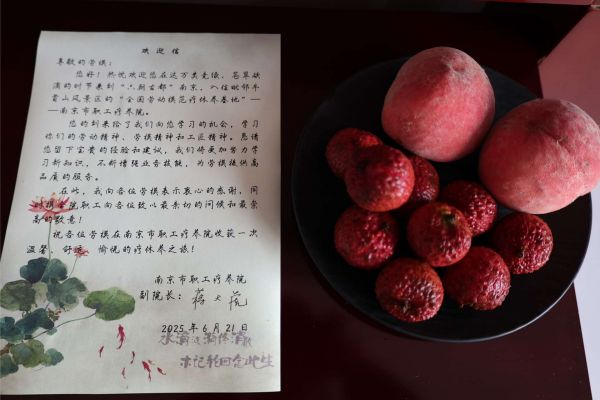 欢迎信
尊敬的劳模:
您好!热忱欢迎您在这万类竞绿、荟萃欲
滴的时节来到“六朝古都”南京,入住毗邻牛
首山风景区的“全国劳动模范疗休养基地”——
——南京市职工疗养院。
您的到来给了我们向您学习的机会,学习
你们的劳动精神、劳模精神和工匠精神。恳请
您留下宝贵的经验和建议,我们将更加努力学
习新知识,不断增强业务技能,为劳模提供高
品质的服务。
在此,我向各位劳模表示衷心的感谢,同
时携全院职工向各位致以最亲切的问候和最崇
高的敬意!
祝各位劳模在南京市职工疗养院收获一次
温馨、舒适、愉悦的疗休养之旅!
南京市职工疗养院
副院长:
2025年6月21日
水滴
亦记轮回念此生